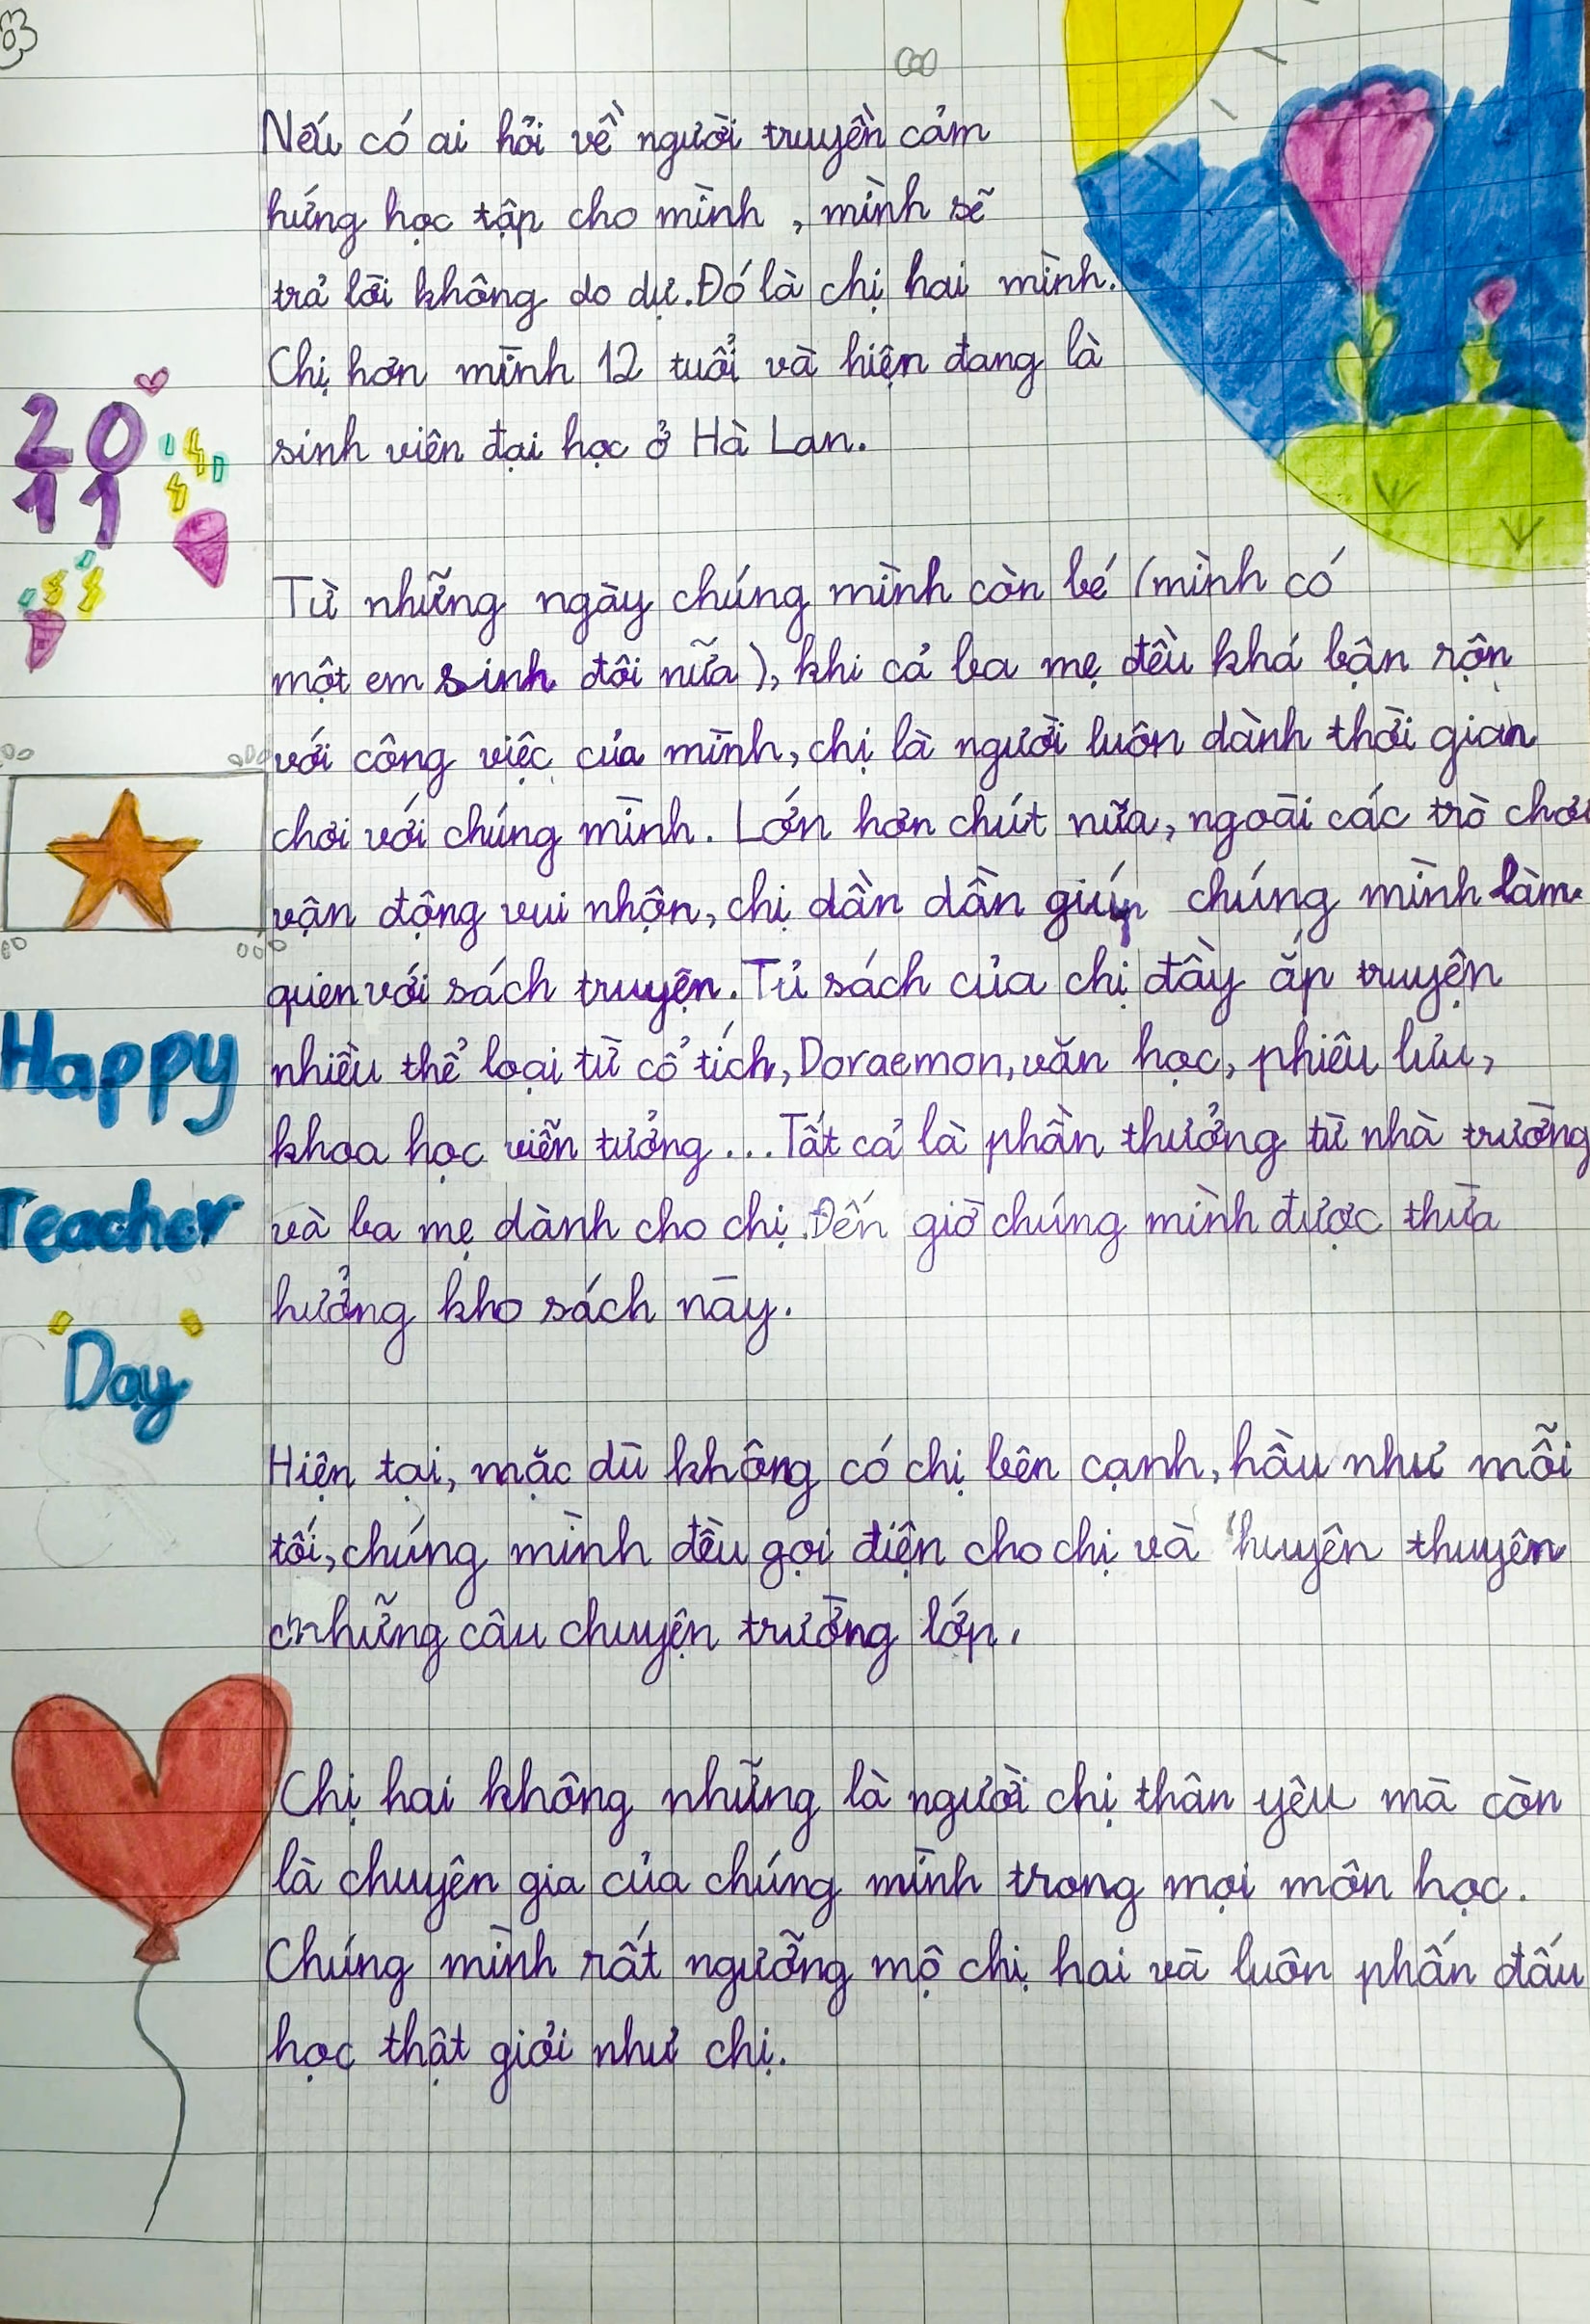 Nếu có ai hỏi về người truyền cảm
hứng học tập cho mình, mình sẽ
trả lời không do dự. Đó là chị hai mình.
Chị hơn mình 12 tuổi và hiện đang là
sinh viên đại học ở Hà Lan.
20
11
Từ những ngày chúng mình còn bé (mình có
một em sinh đôi nữa), khi cả ba mẹ đều khá bận rộn
với công việc của mình, chị là người luôn dành thời gian
chơi với chúng mình. Lớn hơn chút nữa, ngoài các trò chơi
vận động vui nhộn, chị dần dần giúp chúng mình làm
quen với sách truyện. Tủ sách của chị đầy ắp truyện
nhiều thể loại từ cổ tích, Doraemon, văn học, phiêu lưu,
khoa học viễn tưởng... Tất cả là phần thưởng từ nhà trường
và ba mẹ dành cho chị. Đến giờ chúng mình được thừa
hưởng kho sách này.
Happy
Teacher
Day
Hiện tại, mặc dù không có chị bên cạnh, hầu như mỗi
tối, chúng mình đều gọi điện cho chị và huyên thuyên
những câu chuyện trường lớp.
Chị hai không những là người chị thân yêu mà còn
là chuyên gia của chúng mình trong mọi môn học.
Chúng mình rất ngưỡng mộ chị hai và luôn phấn đấu
học thật giỏi như chị.